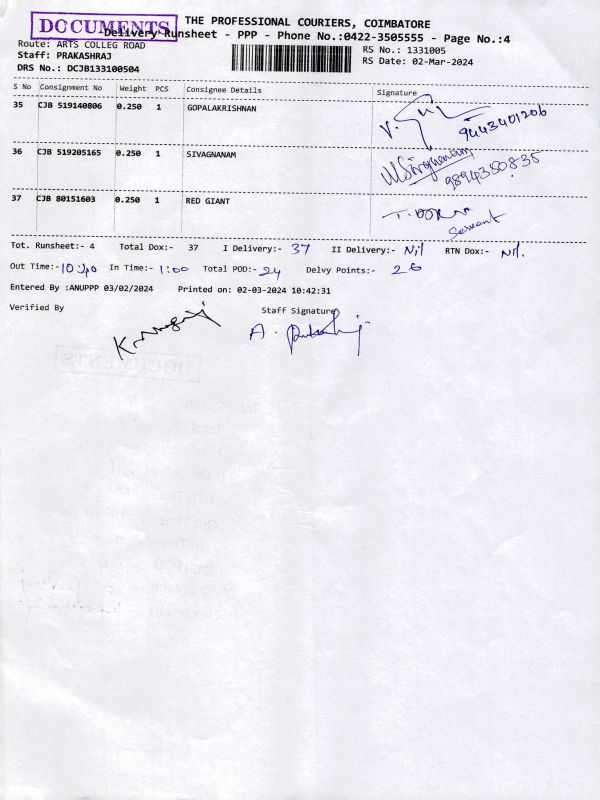 DOCUMENTS
THE PROFESSIONAL COURIERS, COIMBATORE
Delivery Runsheet - PPP - Phone No.:0422-3505555 - Page No.:4
Route: ARTS COLLEG ROAD
RS No.: 1331005
Staff: PRAKASHRAJ
RS Date: 02-Mar-2024
DRS No.: DCJB133100504
S No Consignment No Weight PCS Consignee Details Signature
35 CJB 519140806 0.250 1 GOPALAKRISHNAN
9443401206
36 CJB 519205165 0.250 1 SIVAGNANAM
M Sivagnanam
9894350835
37 CJB 80151603 0.250 1 RED GIANT
Servant
Tot. Runsheet:- 4 Total Dox:- 37 I Delivery:- 37 II Delivery:- Nil RTN Dox:- Nil.
Out Time:- 10:40 In Time:- 1:00 Total POD:- 24 Delvy Points:- 26
Entered By :ANUPPP 03/02/2024 Printed on: 02-03-2024 10:42:31
Verified By Staff Signature